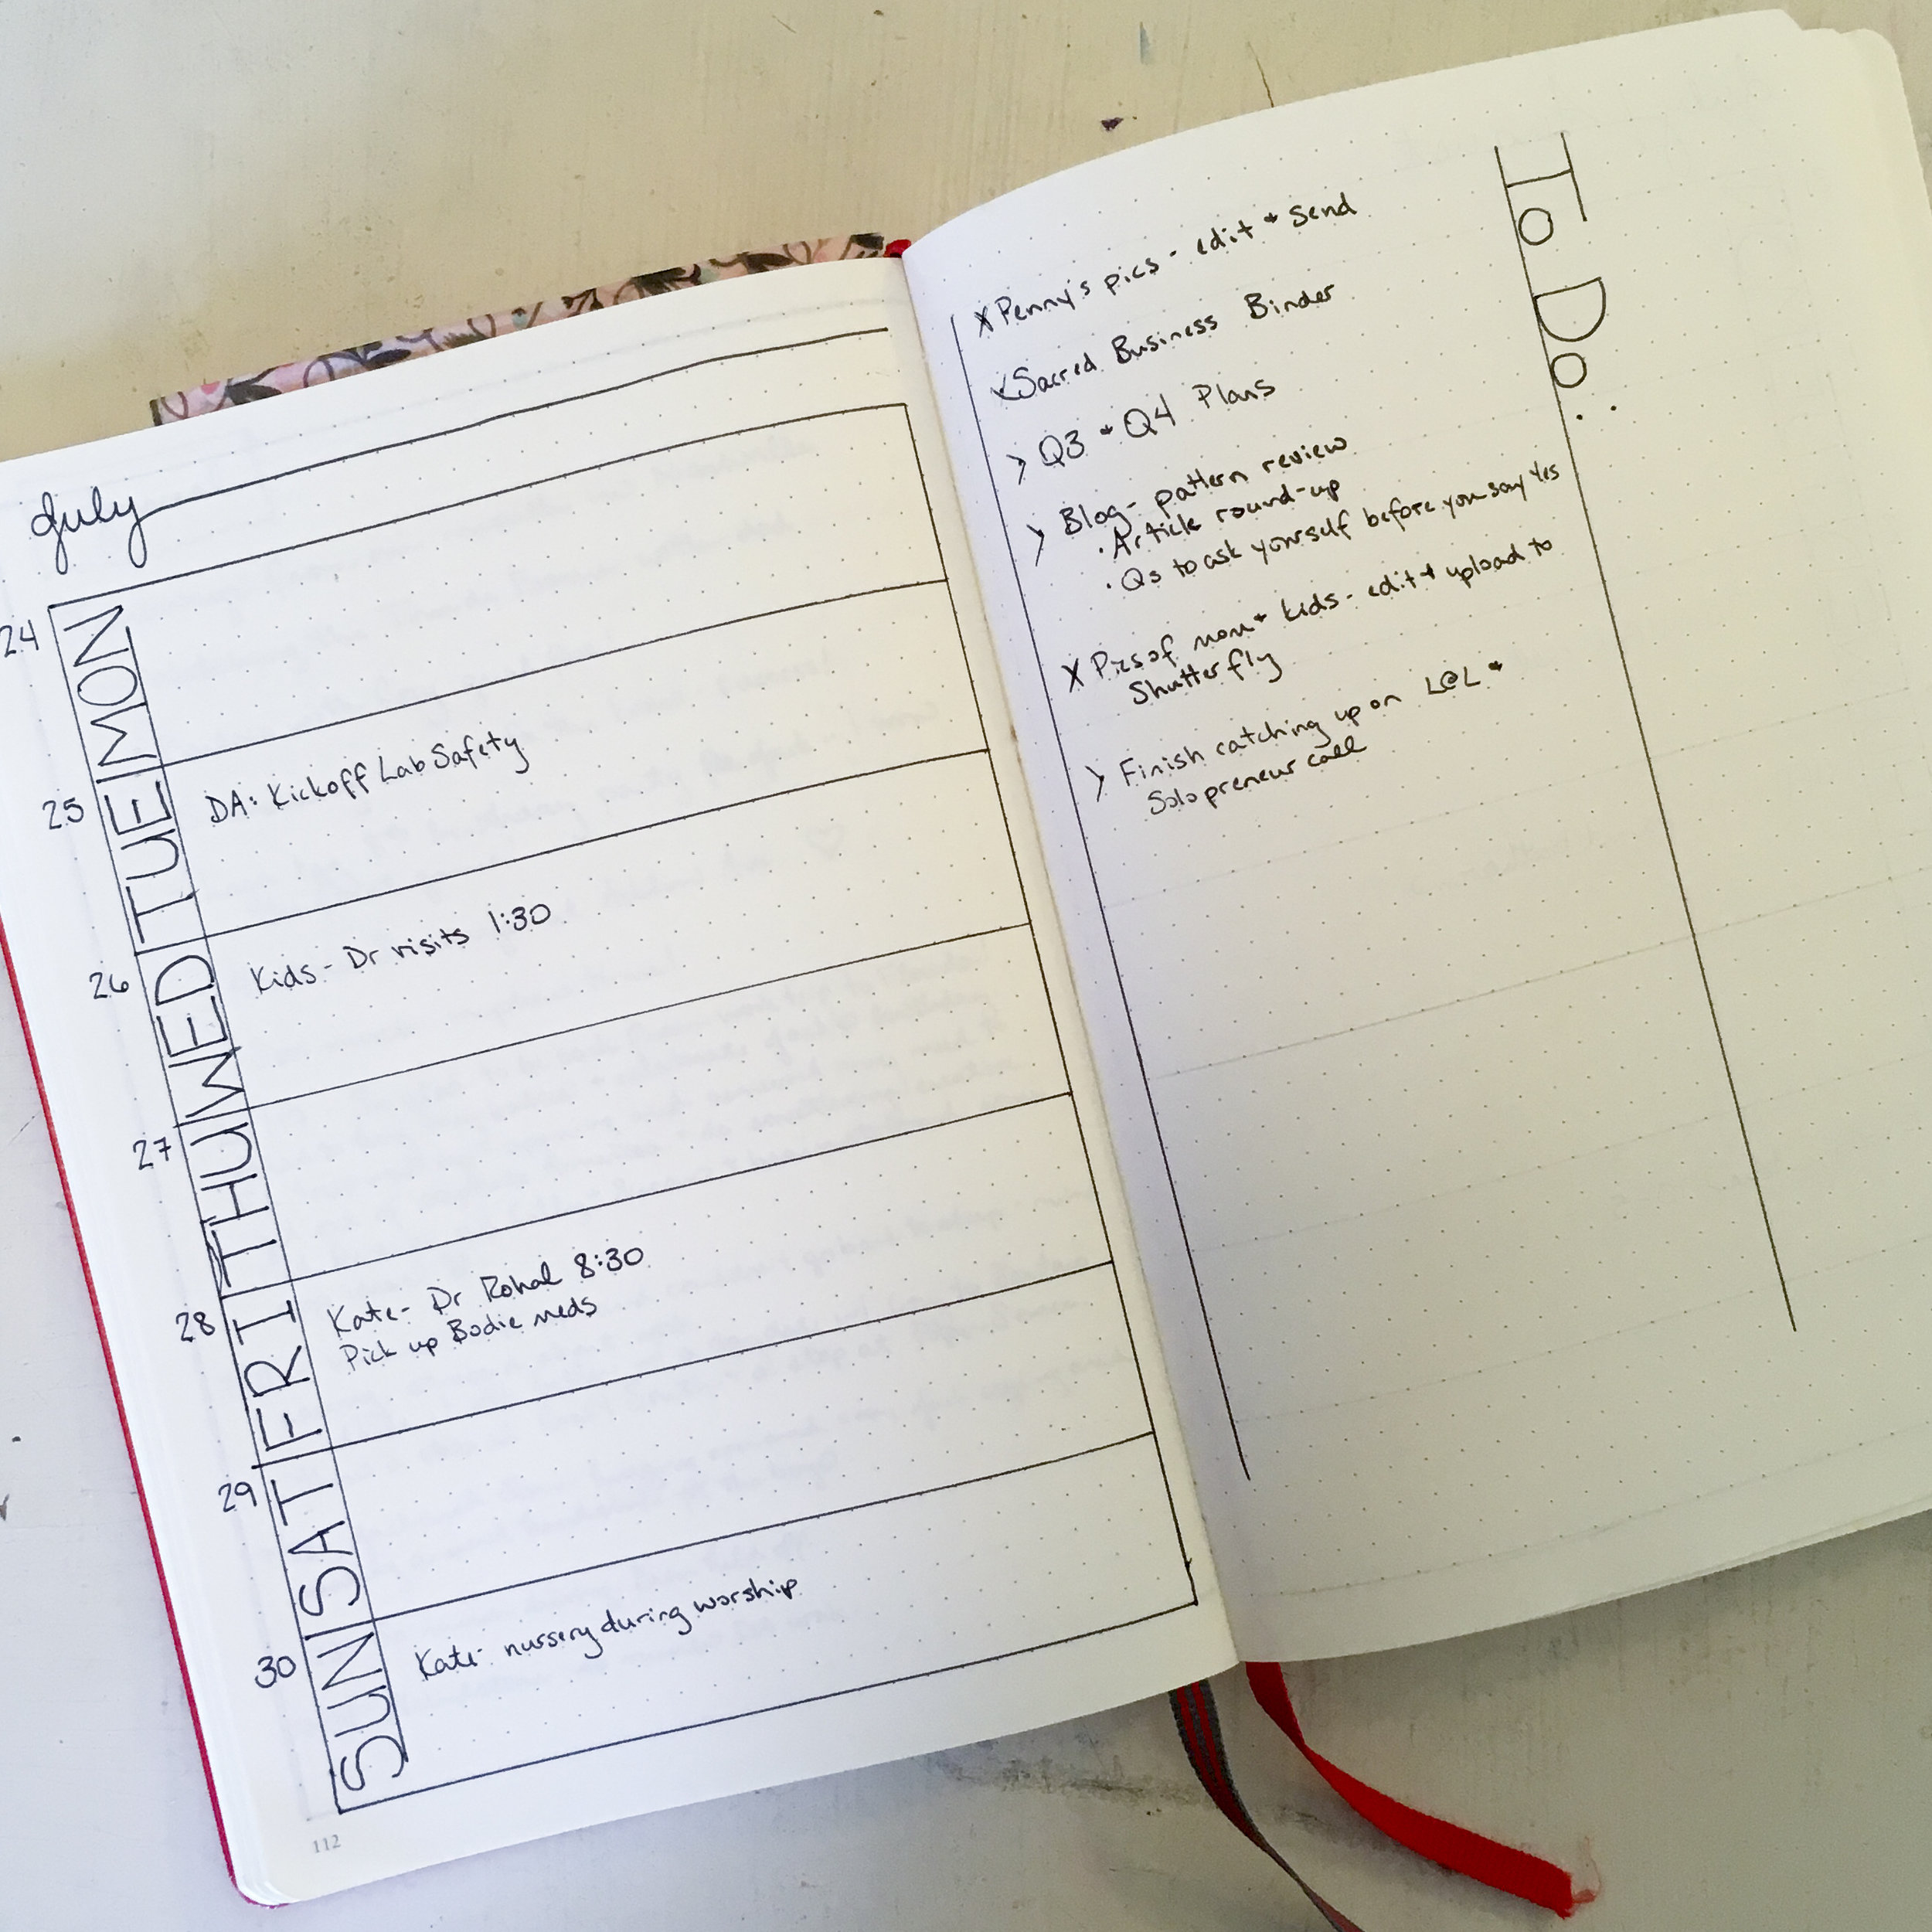 July
24 MON
25 TUE
DA: Kickoff Lab Safety
26 WED
Kids - Dr visits 1:30
27 THU
28 FRI
Kate - Dr Rohal 8:30
Pick up Bodie meds
29 SAT
30 SUN
Kate - nursery during worship
112
To Do:
X Penny's pics - edit + send
Sacred Business Binder
> Q3 + Q4 Plans
> Blog - pattern review
· Article round-up
· Qs to ask yourself before you say Yes
X Pics of mom + kids - edit + upload to
Shutterfly
> Finish catching up on L@L +
Solopreneur call